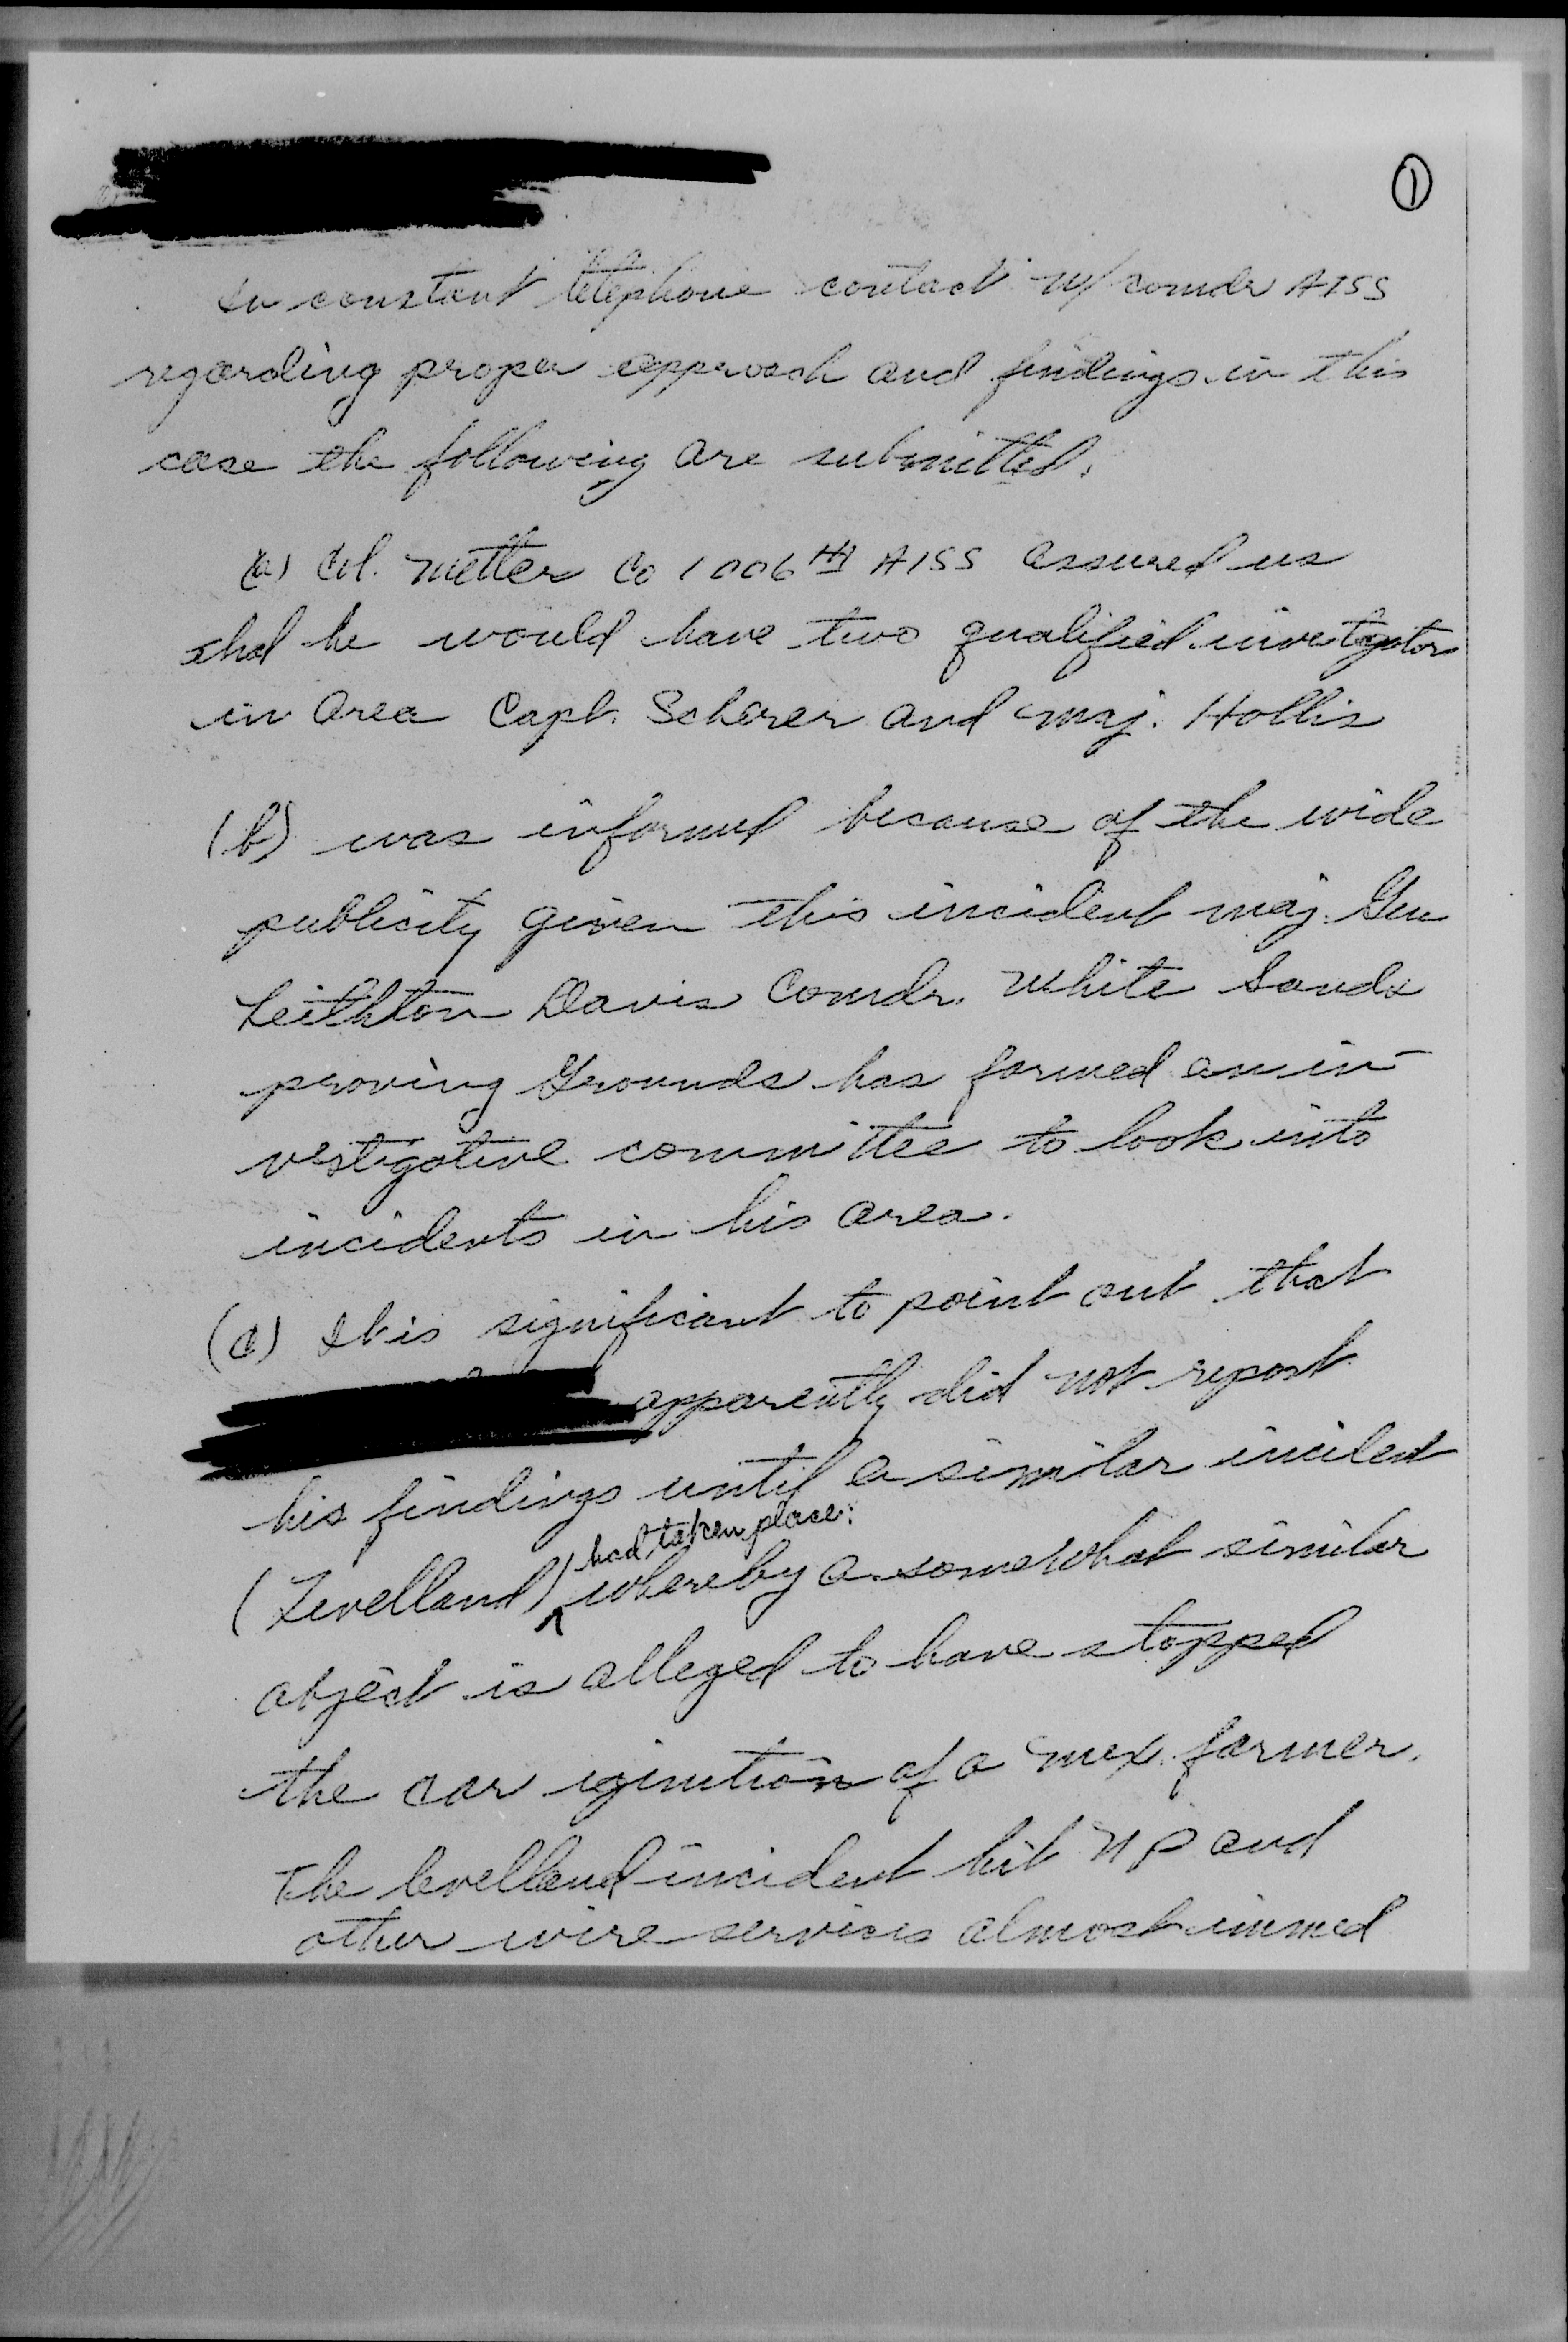 ①
In constant telephone contact w/ comdr AISS
regarding proper approach and findings in this
case the following are submitted.
(a) Col. Metter Co 1006th AISS assured us
that he would have two qualified investigator
in area Capt. Scherer and Maj. Hollis
(b) was informed because of the wide
publicity given this incident maj. Gen
Leithton Davis Comdr. White Sands
proving Grounds has formed an in-
vestigative committee to look into
incidents in his area.
(c) It is significant to point out that
apparently did not report
his findings until a similar incident
had taken place.
(Levelland) ^ whereby a somewhat similar
object is alleged to have stopped
the car ignition of a mex. farmer.
The levelland incident hit UP and
other wire services almost immed